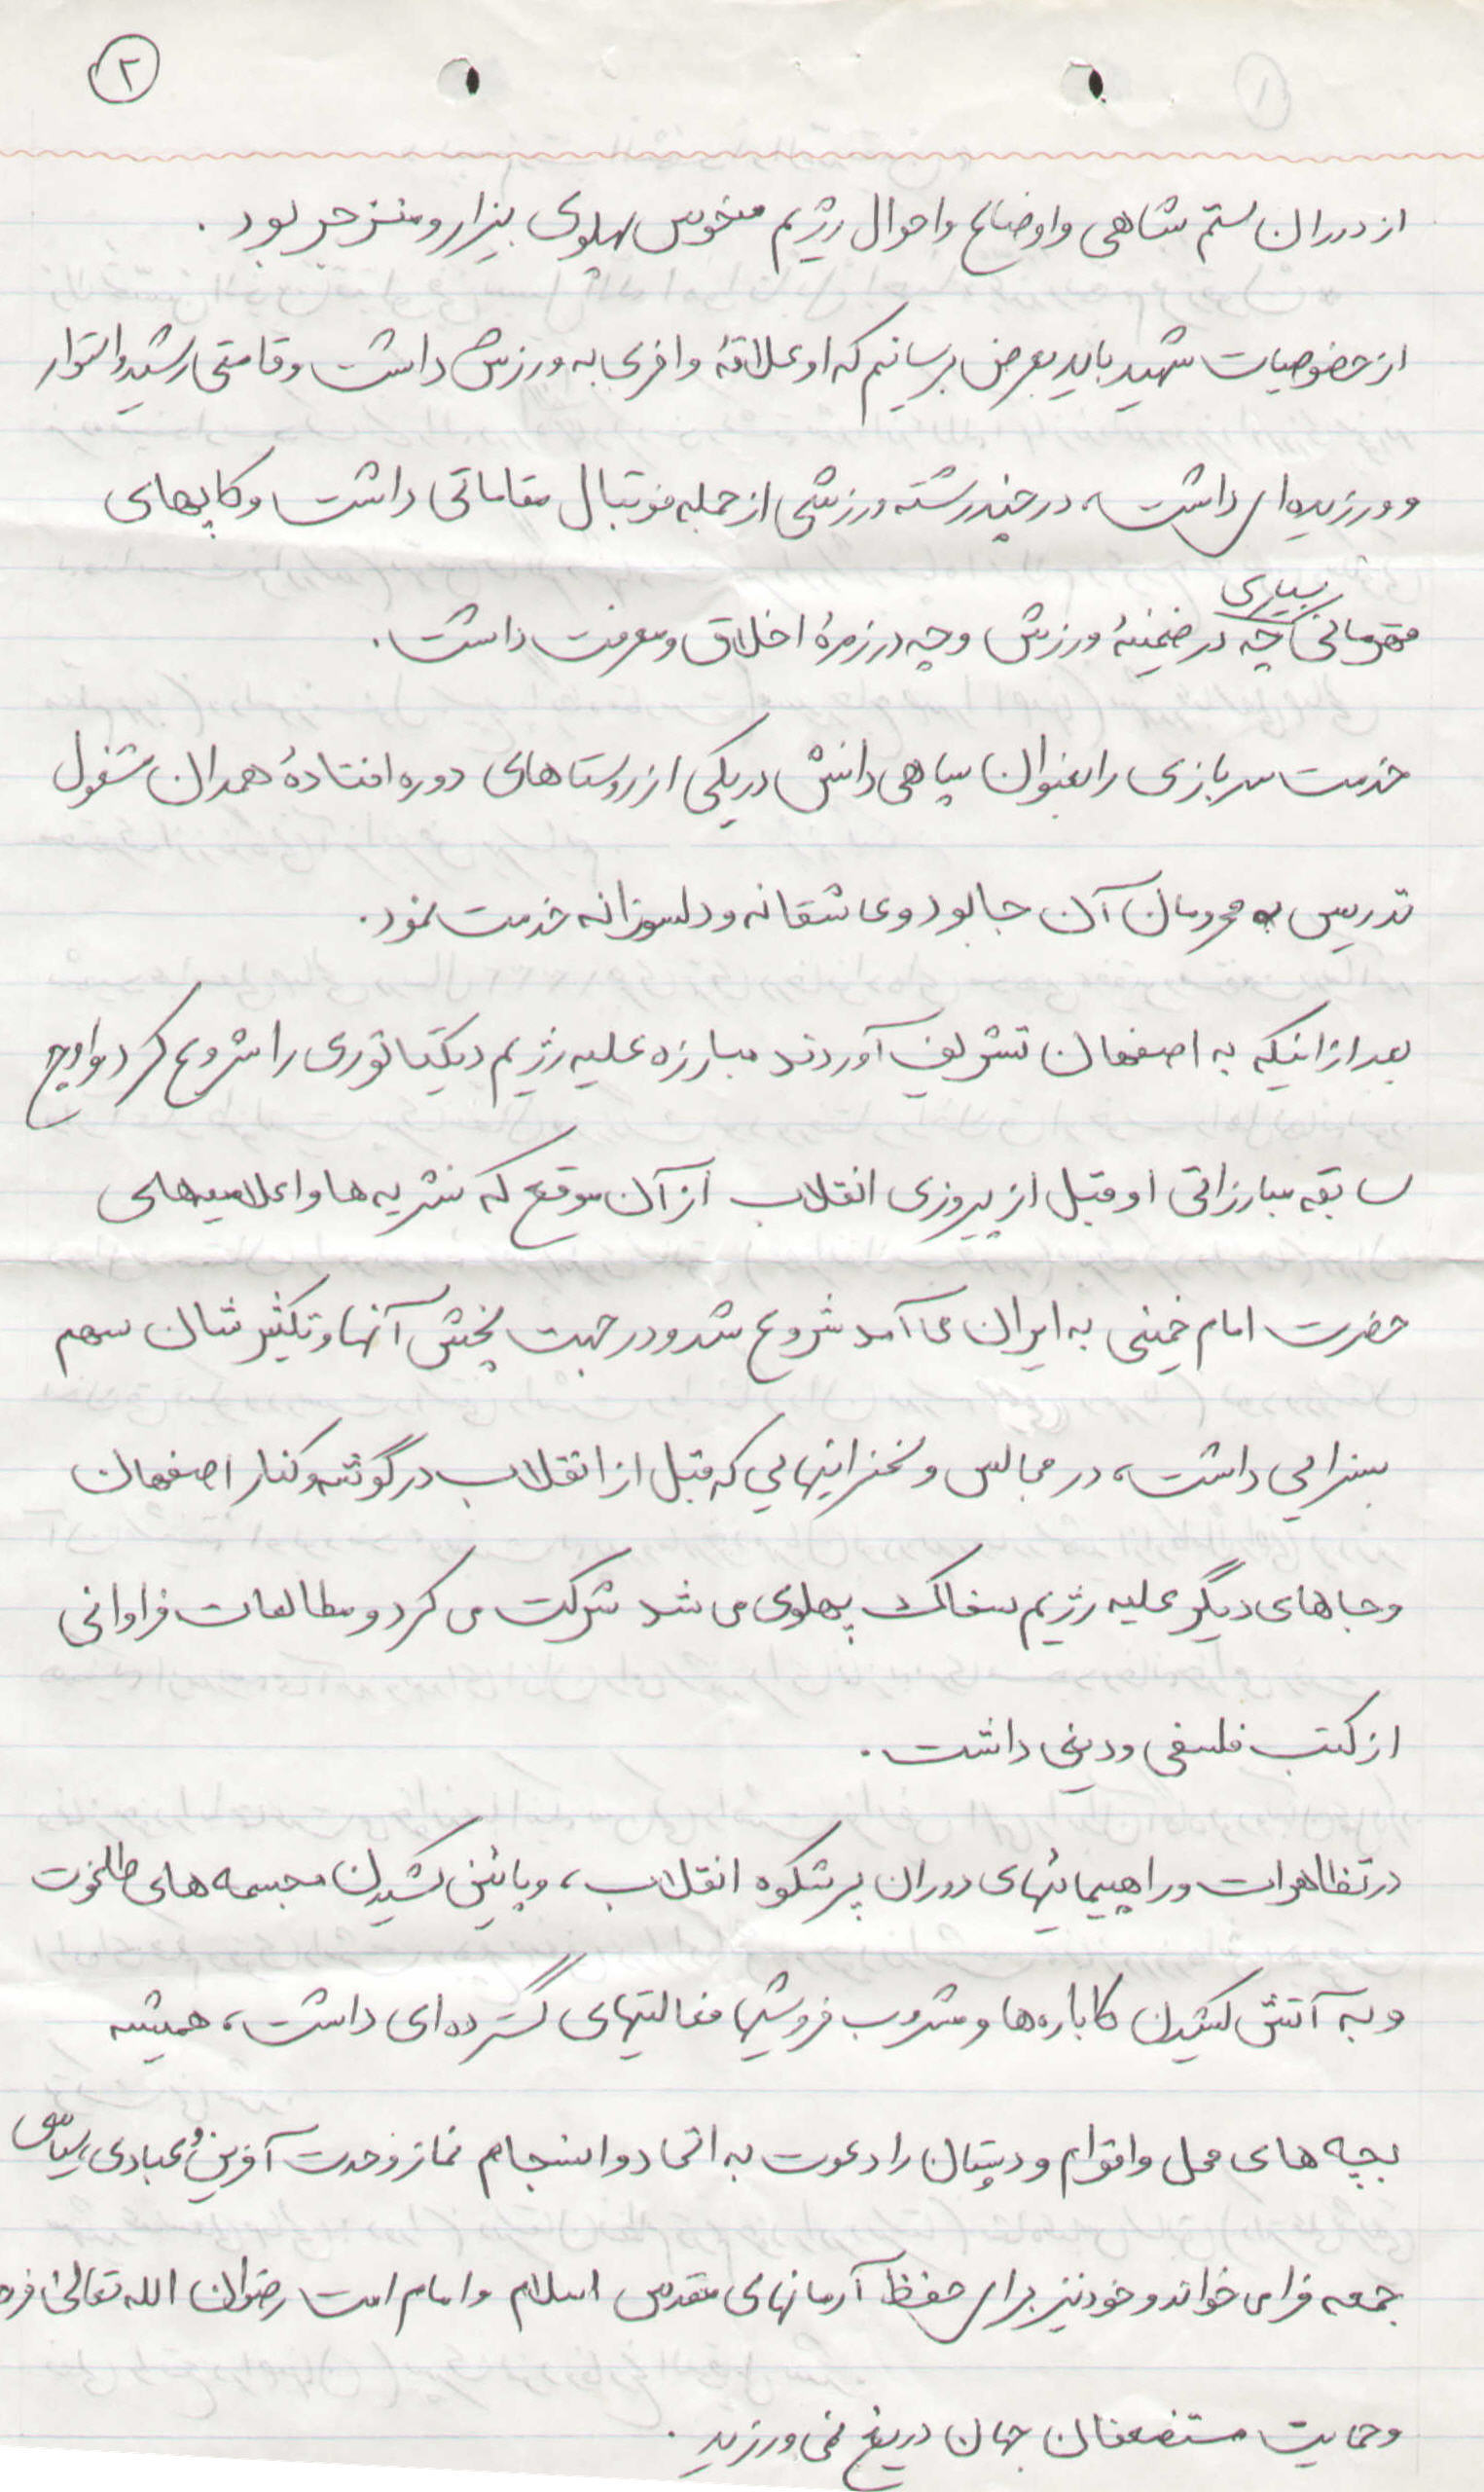 ۲
از دوران ستم شاهی و اوضاع و احوال رژیم منحوس پهلوی بیزار و منزجر بود .
از خصوصیات شهید باید بعرض برسانیم که او علاقهٔ وافری به ورزش داشت و قامتی رشید و استوار
و ورزیده ای داشت، در چند رشته ورزشی از جمله فوتبال مقاماتی داشت و کاپهای
بسیاری
قهرمانی چه در ضمینهٔ ورزش و چه در زمرهٔ اخلاق و معرفت داشت .
خدمت سربازی را بعنوان سپاهی دانش در یکی از روستاهای دوره افتادهٔ همدان مشغول
تدریس به محرومان آن جا بود و عاشقانه و دلسوزانه خدمت نمود .
بعد از اینکه به اصفهان تشریف آوردند مبارزه علیه رژیم دیکتاتوری را شروع کرد و اوج
سابقه مبارزاتی او قبل از پیروزی انقلاب از آن موقع که نشریه ها و اعلامیه‌های
حضرت امام خمینی به ایران می آمد شروع شد و در جهت پخش آنها و تکثیرشان سهم
بسزایی داشت، در مجالس و سخنرانیهایی که قبل از انقلاب در گوشه و کنار اصفهان
و جاهای دیگر علیه رژیم سفاک پهلوی می شد شرکت می کرد و مطالعات فراوانی
از کتب فلسفی و دینی داشت .
در تظاهرات و راهپیمائیهای دوران پرشکوه انقلاب، و پائین کشیدن مجسمه های طاغوت
و به آتش کشیدن کاباره‌ها و مشروب فروشیها فعالیتهای گسترده‌ای داشت، همیشه
بچه های محل و اقوام و دوستان را دعوت به اتحاد و انسجام نماز وحدت آفرین و عبادی، سیاسی
جمعه فرا می خواند و خود نیز برای حفظ آرمانهای مقدس اسلام و امام امت رضوان الله تعالی
و حمایت مستضعفان جهان دریغ نمی ورزید .